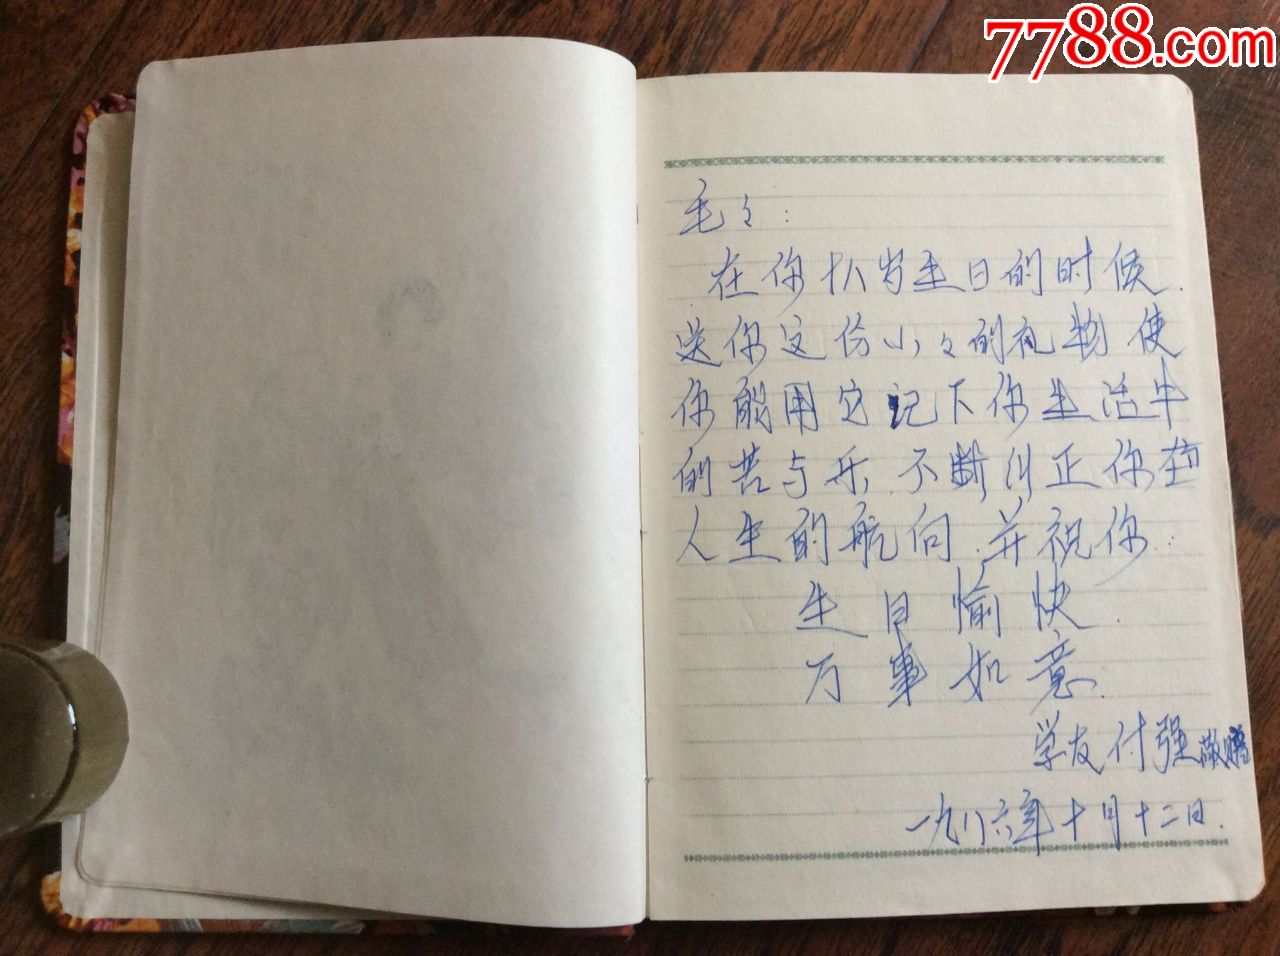 7788.com
毛々：
在你十八岁生日的时候
送你这份小々的礼物 使
你能用它记下你生活中
的苦与乐.不断纠正你在
人生的航向.并祝你：
生日愉快
万事如意.
学友付强敬赠
一九八六年十月十二日.